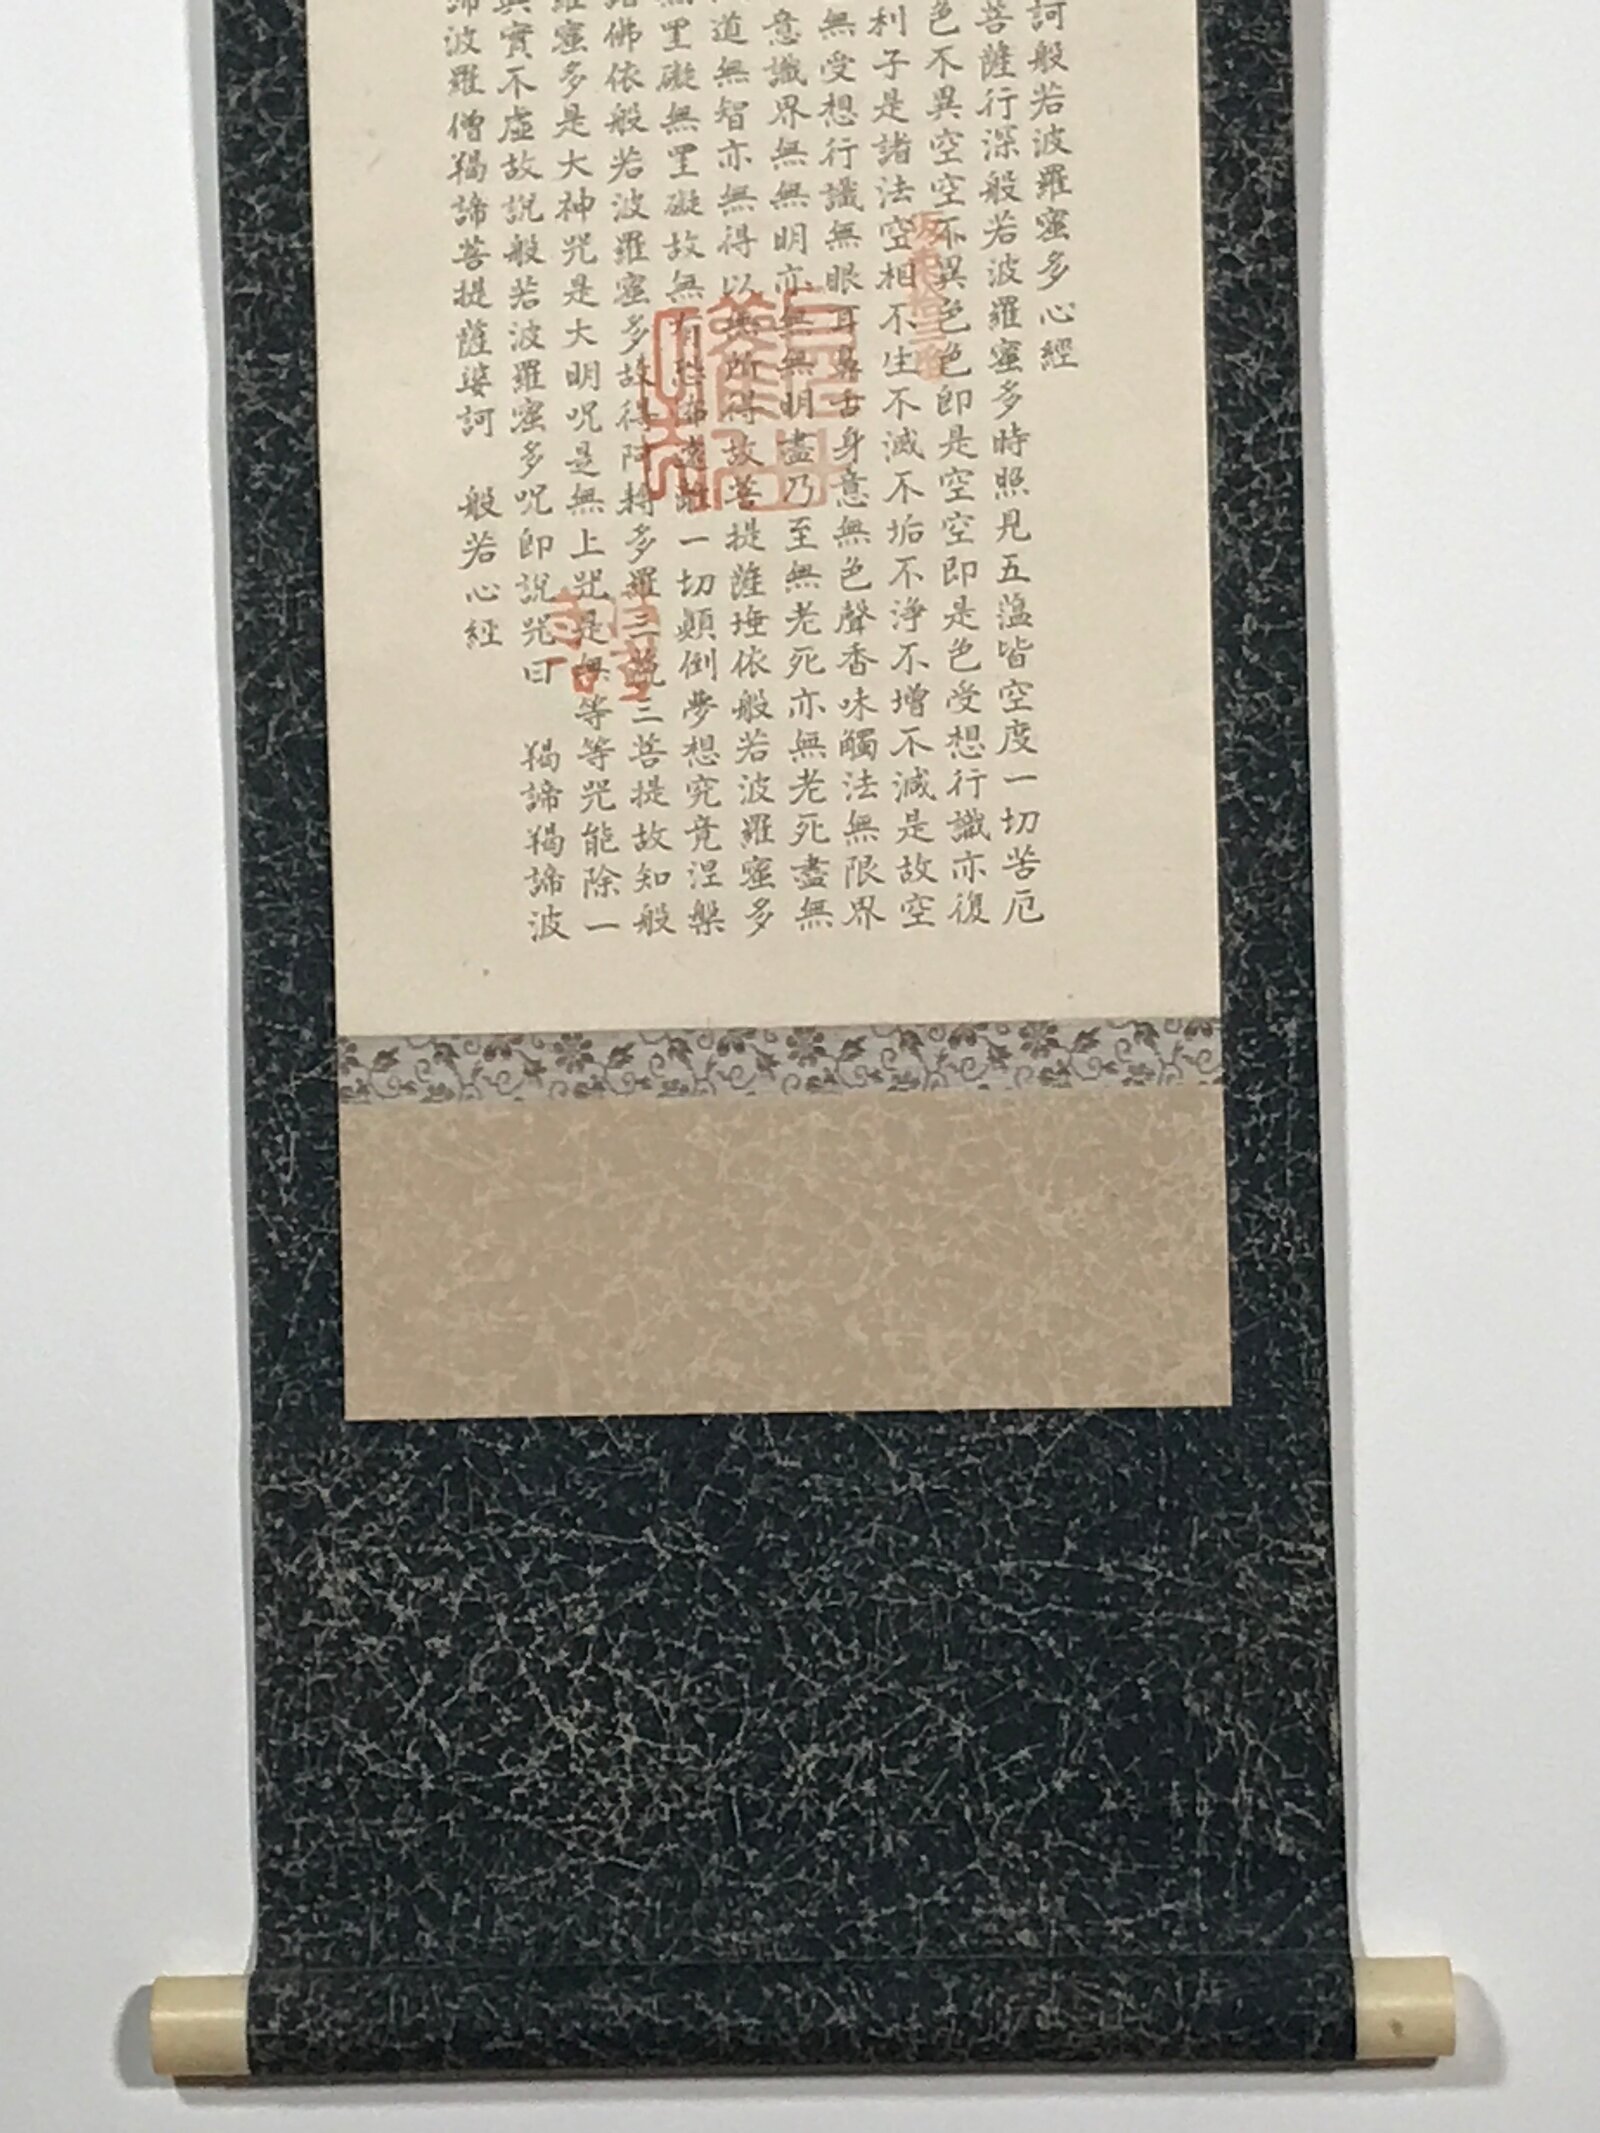 訶般若波羅蜜多心經
菩薩行深般若波羅蜜多時照見五蘊皆空度一切苦厄
色不異空空不異色色即是空空即是色受想行識亦復
利子是諸法空相不生不滅不垢不淨不增不減是故空
無受想行識無眼耳鼻舌身意無色聲香味觸法無限界
意識界無無明亦無無明盡乃至無老死亦無老死盡無
道無智亦無得以無所得故菩提薩埵依般若波羅蜜多
罣礙無罣礙故無有恐怖遠離一切顛倒夢想究竟涅槃
佛依般若波羅蜜多故得阿耨多羅三藐三菩提故知般
羅蜜多是大神咒是大明呪是無上咒是無等等咒能除一
實不虛故說般若波羅蜜多呪即說咒曰 羯諦羯諦波
諦波羅僧羯諦菩提薩婆訶 般若心經